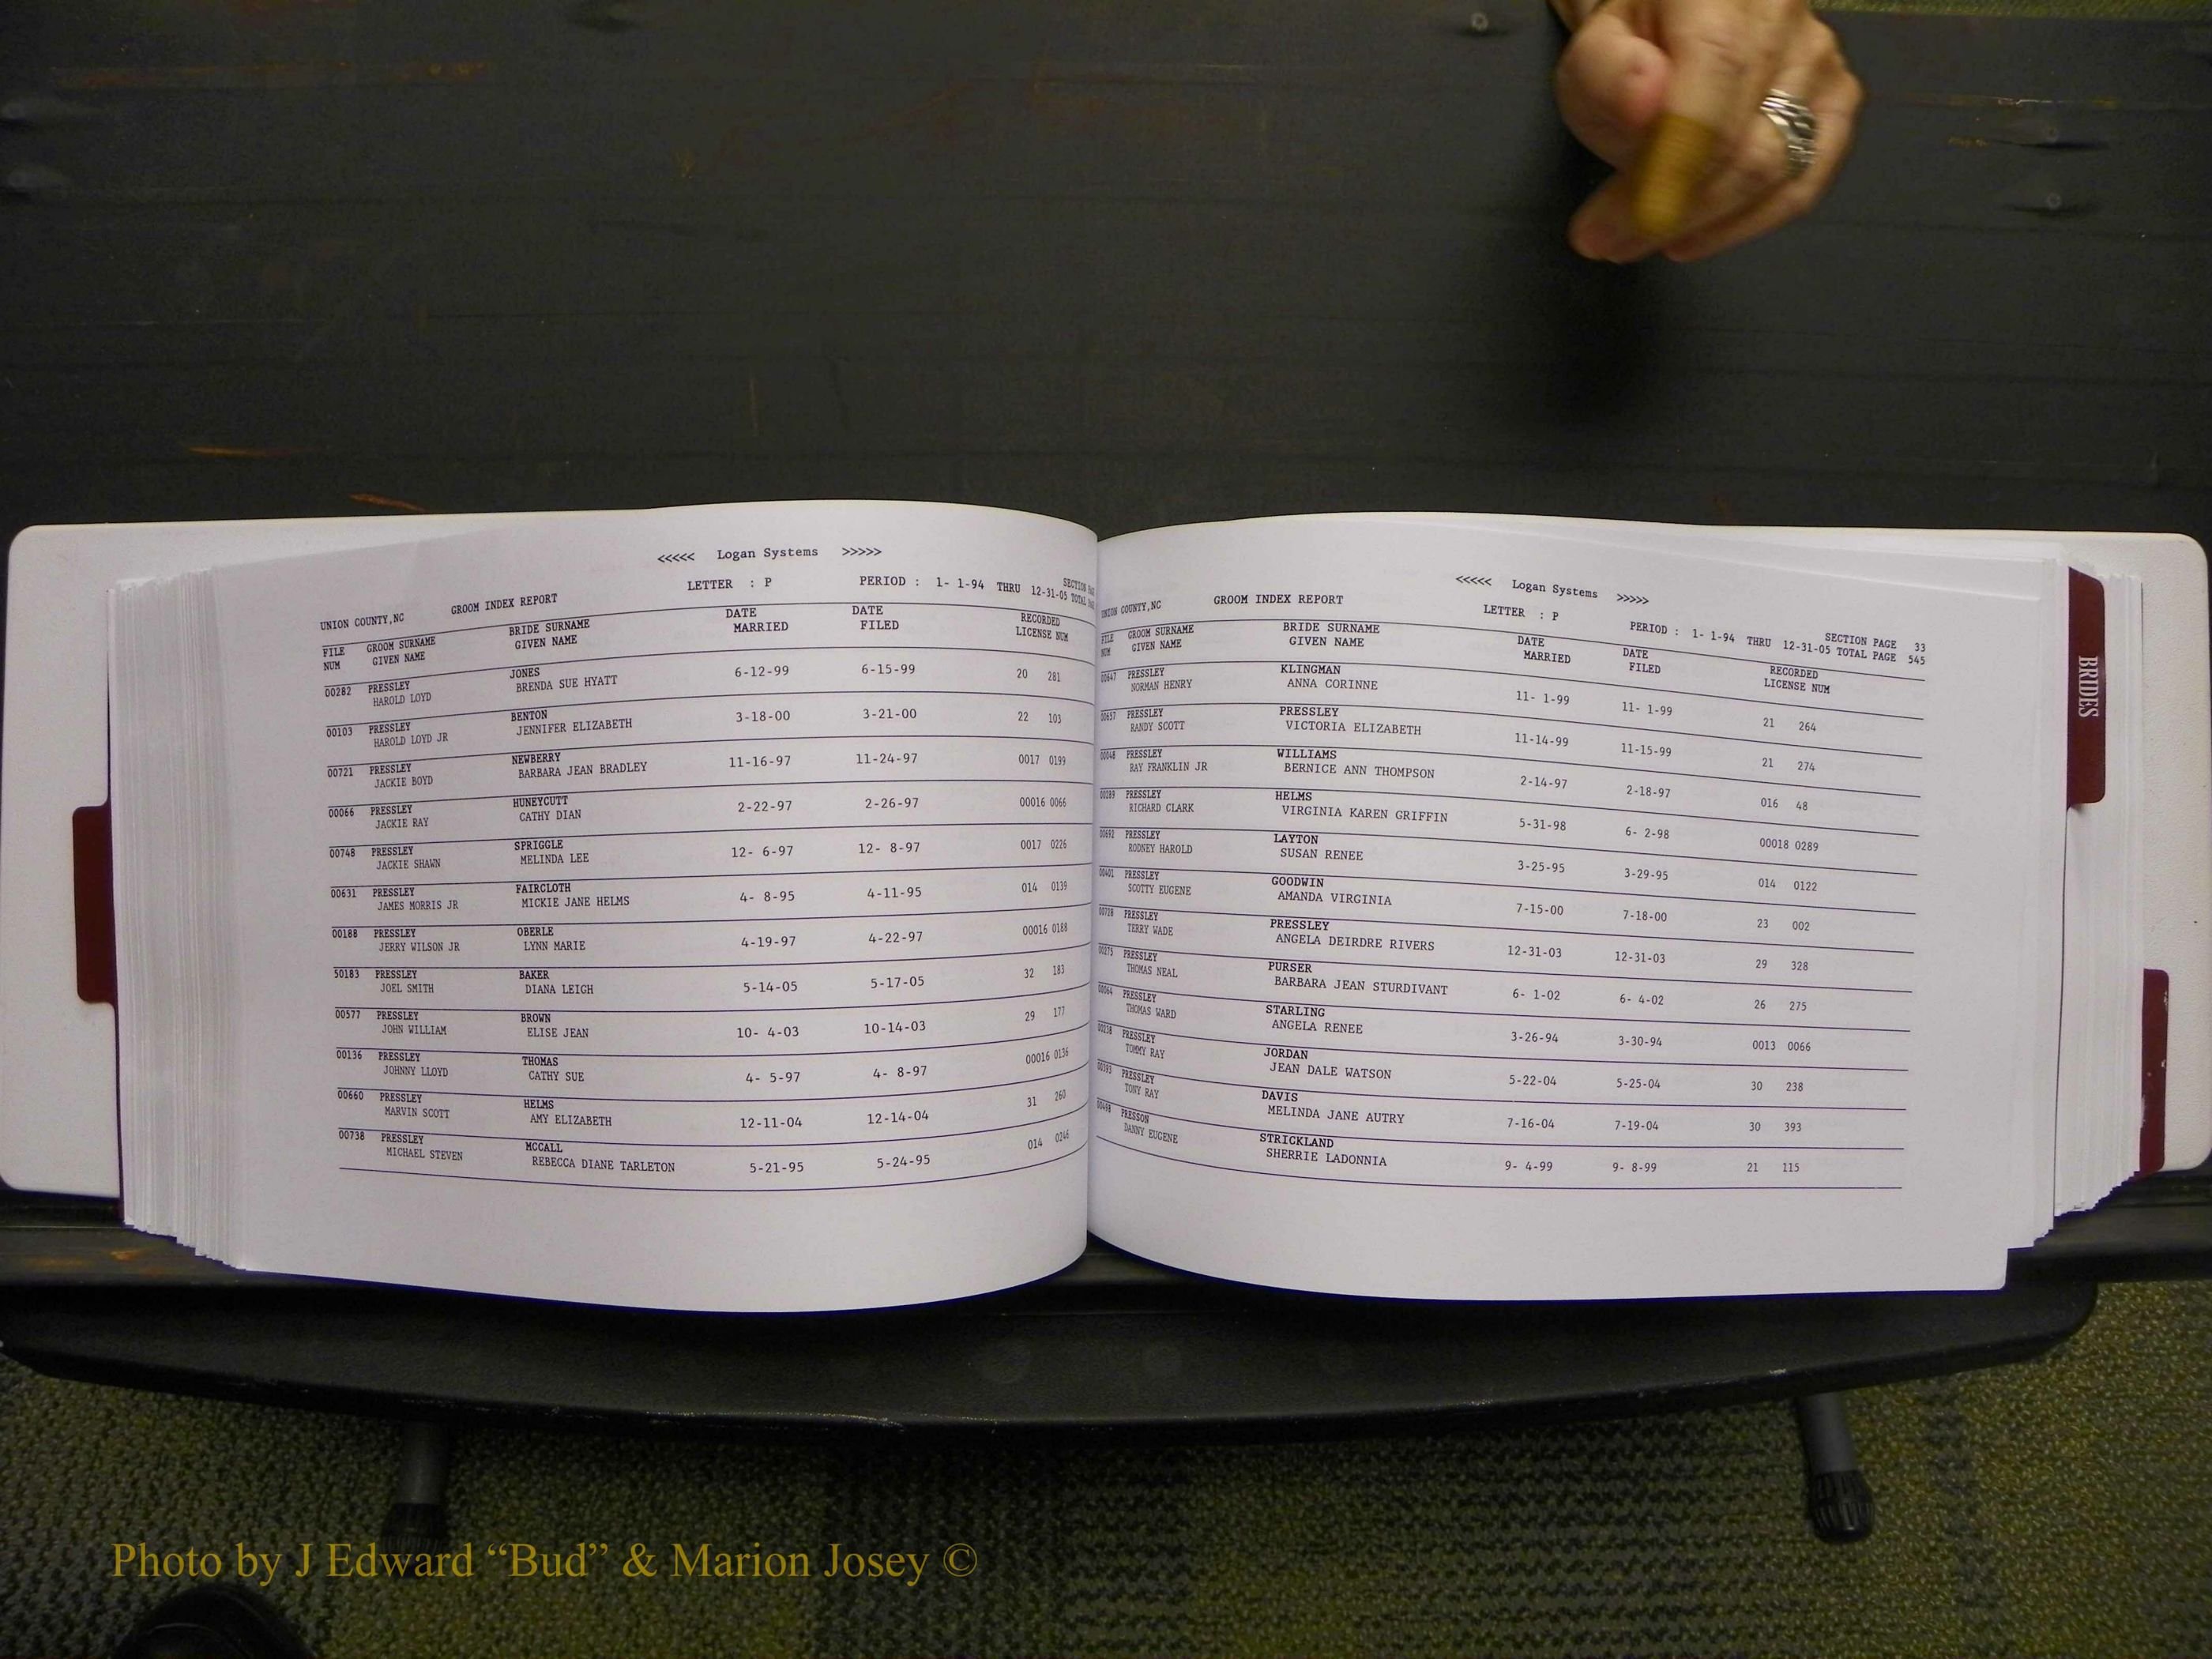 <<<<< Logan Systems >>>>>
UNION COUNTY,NC GROOM INDEX REPORT LETTER : P PERIOD : 1- 1-94 THRU 12-31-05 SECTION
TOTAL
FILE GROOM SURNAME BRIDE SURNAME DATE DATE RECORDED
NUM GIVEN NAME GIVEN NAME MARRIED FILED LICENSE NUM
00282 PRESSLEY JONES 6-12-99 6-15-99 20 281
HAROLD LOYD BRENDA SUE HYATT
00103 PRESSLEY BENTON 3-18-00 3-21-00 22 103
HAROLD LOYD JR JENNIFER ELIZABETH
00721 PRESSLEY NEWBERRY 11-16-97 11-24-97 0017 0199
JACKIE BOYD BARBARA JEAN BRADLEY
00066 PRESSLEY HUNEYCUTT 2-22-97 2-26-97 00016 0066
JACKIE RAY CATHY DIAN
00748 PRESSLEY SPRIGGLE 12- 6-97 12- 8-97 0017 0226
JACKIE SHAWN MELINDA LEE
00631 PRESSLEY FAIRCLOTH 4- 8-95 4-11-95 014 0139
JAMES MORRIS JR MICKIE JANE HELMS
00188 PRESSLEY OBERLE 4-19-97 4-22-97 00016 0188
JERRY WILSON JR LYNN MARIE
50183 PRESSLEY BAKER 5-14-05 5-17-05 32 183
JOEL SMITH DIANA LEIGH
00577 PRESSLEY BROWN 10- 4-03 10-14-03 29 177
JOHN WILLIAM ELISE JEAN
00136 PRESSLEY THOMAS 4- 5-97 4- 8-97 00016 0136
JOHNNY LLOYD CATHY SUE
00660 PRESSLEY HELMS 12-11-04 12-14-04 31 260
MARVIN SCOTT AMY ELIZABETH
00738 PRESSLEY MCCALL 5-21-95 5-24-95 014 0246
MICHAEL STEVEN REBECCA DIANE TARLETON
<<<<< Logan Systems >>>>>
UNION COUNTY,NC GROOM INDEX REPORT LETTER : P PERIOD : 1- 1-94 THRU 12-31-05 SECTION PAGE 33
TOTAL PAGE 545
FILE GROOM SURNAME BRIDE SURNAME DATE DATE RECORDED
NUM GIVEN NAME GIVEN NAME MARRIED FILED LICENSE NUM
00647 PRESSLEY KLINGMAN 11- 1-99 11- 1-99 21 264
NORMAN HENRY ANNA CORINNE
00657 PRESSLEY PRESSLEY 11-14-99 11-15-99 21 274
RANDY SCOTT VICTORIA ELIZABETH
00048 PRESSLEY WILLIAMS 2-14-97 2-18-97 016 48
RAY FRANKLIN JR BERNICE ANN THOMPSON
00289 PRESSLEY HELMS 5-31-98 6- 2-98 00018 0289
RICHARD CLARK VIRGINIA KAREN GRIFFIN
00692 PRESSLEY LAYTON 3-25-95 3-29-95 014 0122
RODNEY HAROLD SUSAN RENEE
00401 PRESSLEY GOODWIN 7-15-00 7-18-00 23 002
SCOTTY EUGENE AMANDA VIRGINIA
00728 PRESSLEY PRESSLEY 12-31-03 12-31-03 29 328
TERRY WADE ANGELA DEIRDRE RIVERS
00275 PRESSLEY PURSER 6- 1-02 6- 4-02 26 275
THOMAS NEAL BARBARA JEAN STURDIVANT
00064 PRESSLEY STARLING 3-26-94 3-30-94 0013 0066
THOMAS WARD ANGELA RENEE
00238 PRESSLEY JORDAN 5-22-04 5-25-04 30 238
TOMMY RAY JEAN DALE WATSON
00393 PRESSLEY DAVIS 7-16-04 7-19-04 30 393
TONY RAY MELINDA JANE AUTRY
00498 PRESSON STRICKLAND 9- 4-99 9- 8-99 21 115
DANNY EUGENE SHERRIE LADONNIA
BRIDES
Photo by J Edward “Bud” & Marion Josey ©